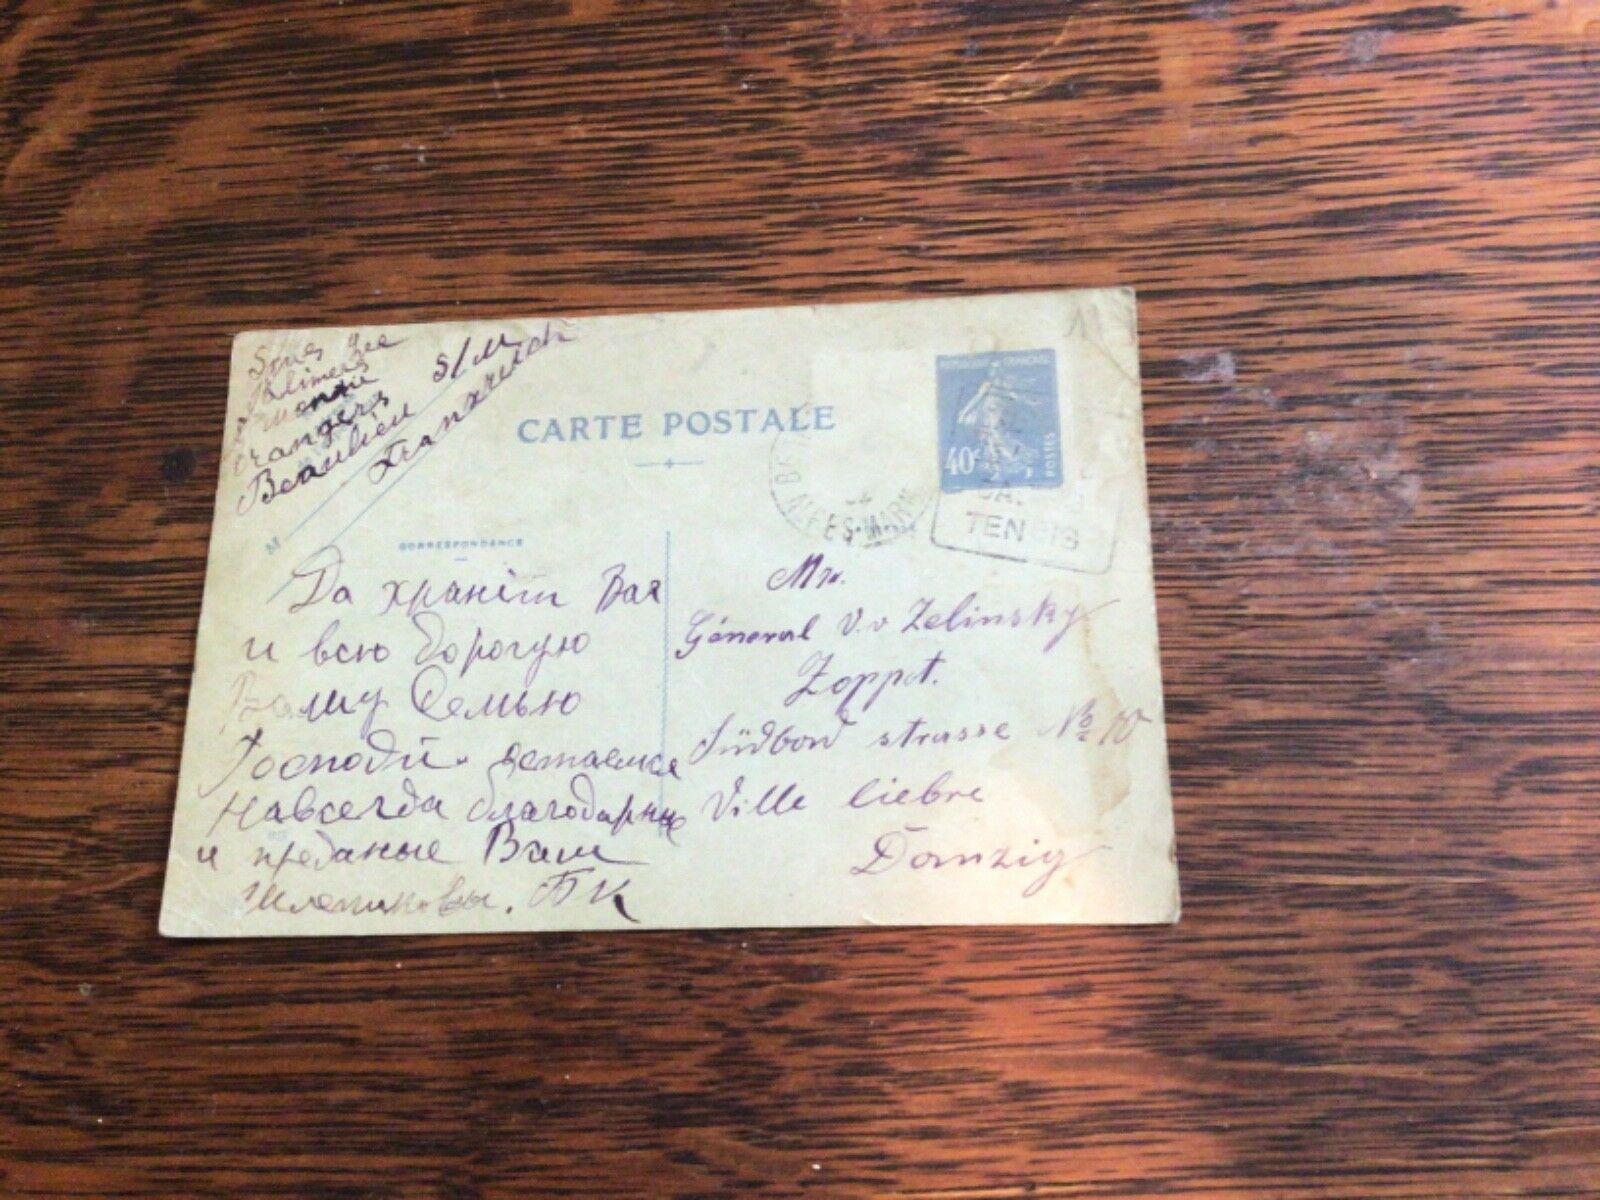 orangers
Beaulieu s/M
Frankreich
CARTE POSTALE
REPUBLIQUE FRANÇAISE
40c
POSTES
ALPES-MAR
TEN
M
CORRESPONDANCE
Да храніт Вас
и всю дорогую
Вашу Семью
Господь. остаемся
навсегда благодарные
и преданые Вам
БК
Mr.
Géneral V. v Zelinsky
Zoppot.
Südbad strasse № 10
Ville liebre
Danzig